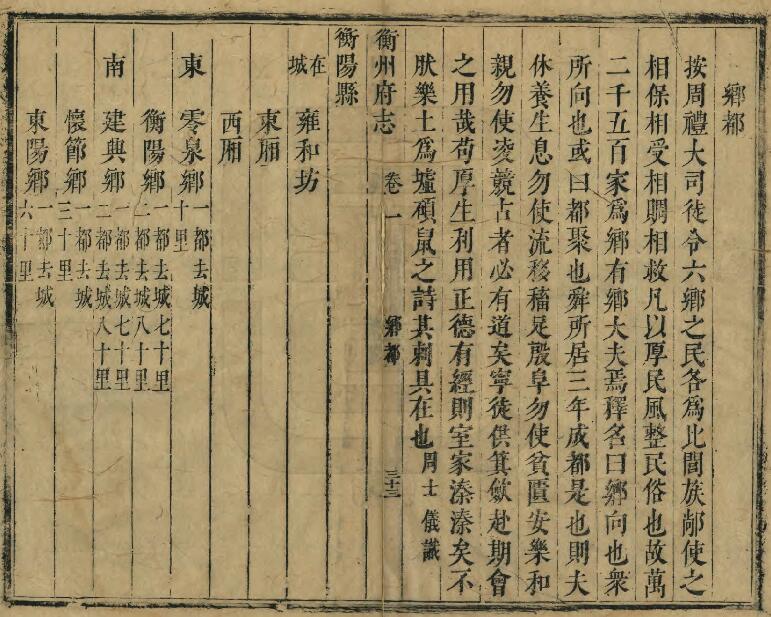 鄉都
按周禮大司徒令六鄉之民各爲比閭族鄙使之
相保相受相賙相救凡以厚民風整民俗也故萬
二千五百家爲鄉有鄉大夫焉釋名曰鄉向也衆
所向也或曰都聚也舜所居三年成都是也則夫
休養生息勿使流移穡足殷阜勿使貧匱安樂和
親勿使凌競占者必有道矣寧徒供箕斂赴期會
之用哉苟厚生利用正德有經則室家溱溱矣不
肰樂土爲墟碩鼠之詩其刺具在也 周士儀識
衡州府志 卷一 鄉都 三十三
衡陽縣
在城 雍和坊
東厢
西厢
東 零泉鄉 一都去城十里
衡陽鄉 一都去城七十里二都去城八十里
南 建興鄉 一都去城七十里二都去城八十里
懷節鄉 一都去城三十里
東陽鄉 一都去城六十里